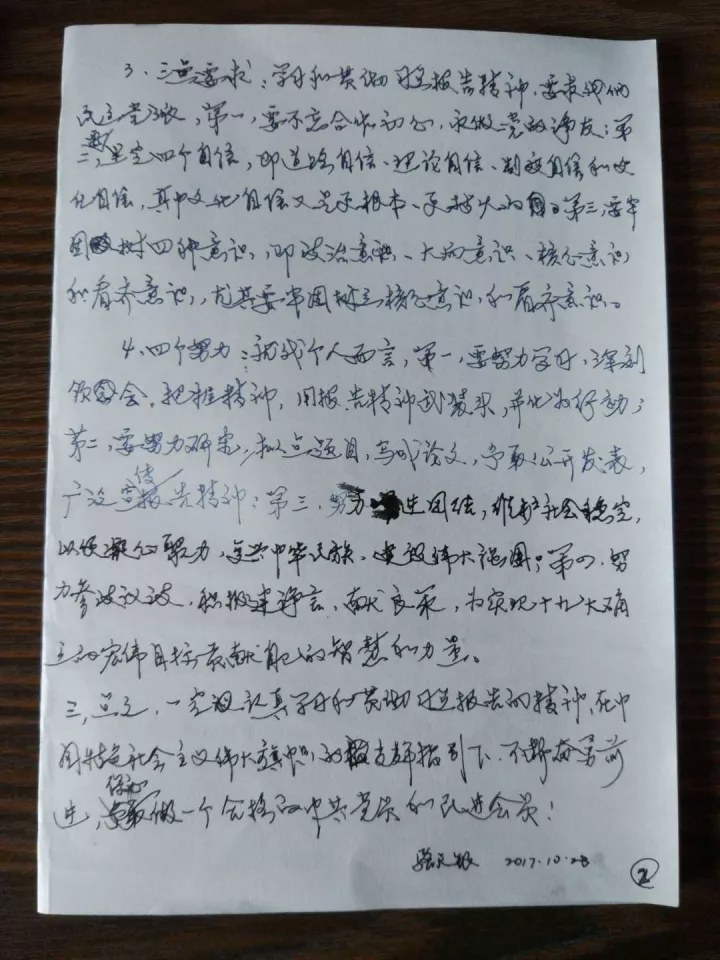 3、三点要求:学习和贯彻习总报告精神,要求我们
民主党派,第一,要不忘合作初心,永做党的诤友;第
二,坚定四个自信,即道路自信、理论自信、制度自信和文
化自信,其中文化自信又是最根本、最持久的;第三,要牢
固树四种意识,即政治意识、大局意识、核心意识
和看齐意识,尤其要牢固树立核心意识和看齐意识。
4、四个努力:就我个人而言,第一,要努力学习,深刻
领会,把握精神,用报告精神武装头,并化为行动;
第二,要努力研究,拟点题目,写成论文,争取公开发表,
广泛宣传报告精神;第三,努力促进团结,维护社会稳定,
以便凝心聚力,复兴中华民族,建设伟大祖国;第四,努
力参政议政,积极建诤言,献良策,为实现十九大确
立的宏伟目标贡献自己的智慧和力量。
三,总之,一定要认真学习和贯彻习总报告的精神,在中
国特色社会主义伟大旗帜的指引下,不断奋勇前
进,做一个合格的中共党员和民进会员!
2017.10.28
2